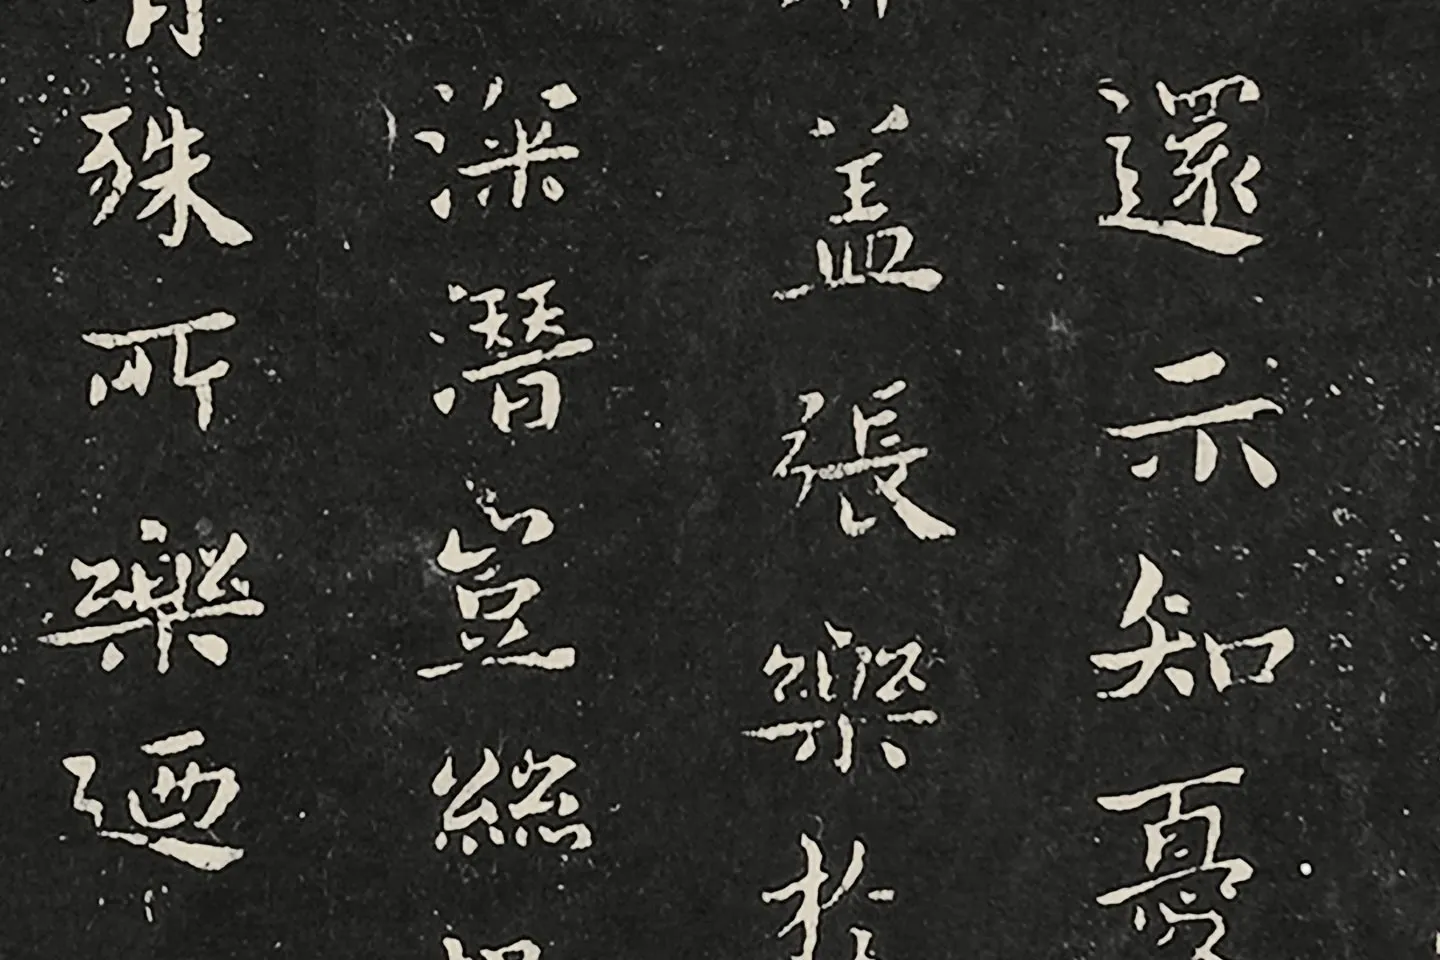 還示知憂
盖張樂於
深潛豈絲
殊所樂迺